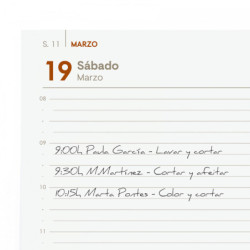 S. 11 | MARZO
19 Sábado
Marzo
08
9:00h Paula García - Lavar y cortar
09
9:30h M.Martínez - Cortar y afeitar
10
10:15h Marta Pontes - Color y cortar
11